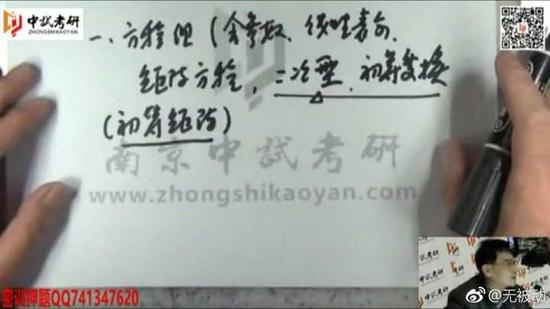 中試考研
ZHONGSHIKAOYAN
中試考研
一、方程组(含参数、线性表示
矩阵方程,二次型,初等变换
(初等矩阵)
南京中試考研
www.zhongshikaoyan.com
密训押题QQ741347620
@无被动